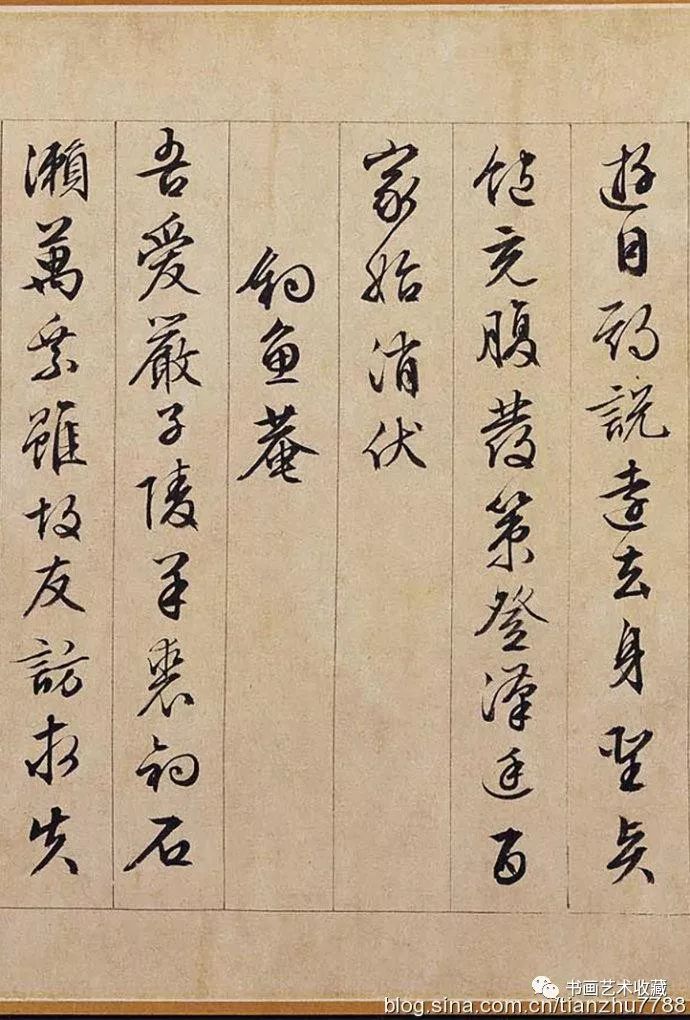 遊目邪說遠去身聖
飽充腹發策登漢廷百
家始消伏
釣魚菴
吾愛嚴子陵羊裘釣石
瀨萬乘雖故友訪求失
书画艺术收藏
blog.sina.com.cn/tianzhu7788